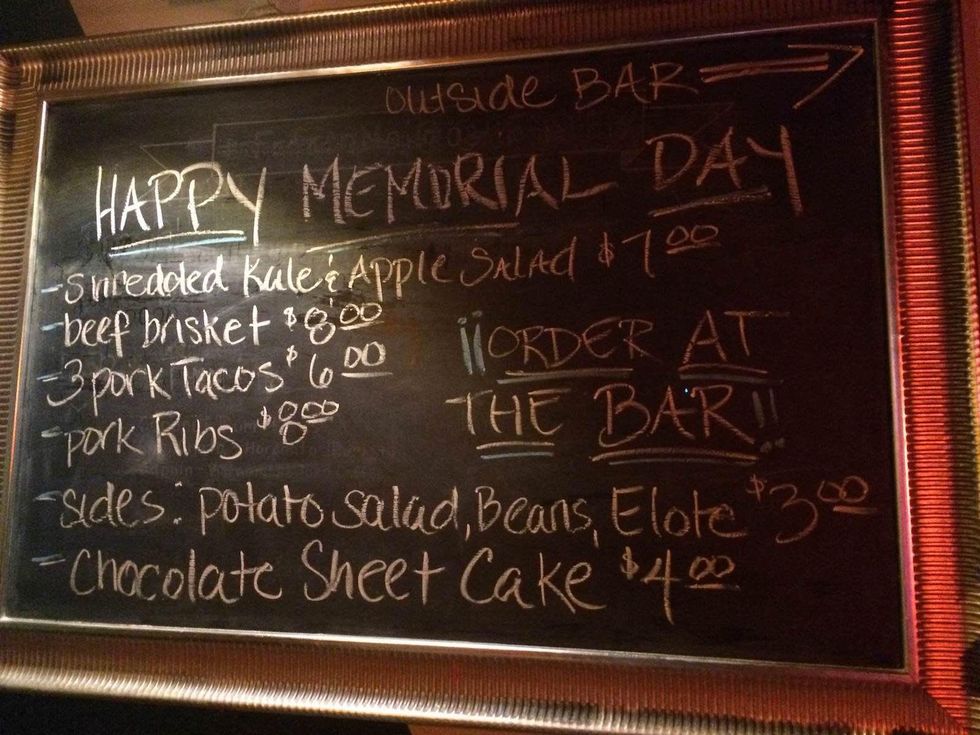 outside BAR →
HAPPY MEMORIAL DAY
- Shredded Kale & Apple SALAD $7.00
- beef brisket $8.00
- 3 pork Tacos $6.00
- pork Ribs $8.00
¡¡ORDER AT
THE BAR!!
- sides: potato salad, Beans, Elote $3.00
- Chocolate Sheet Cake $4.00